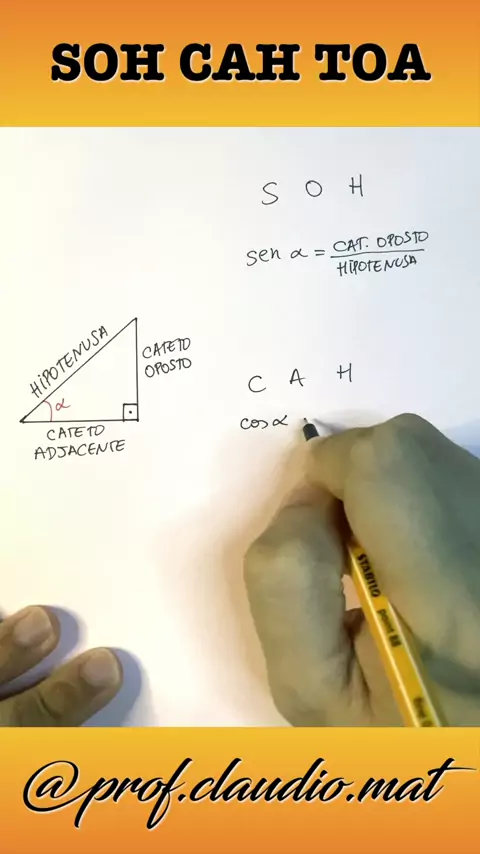 SOH CAH TOA
S O H
sen α = CAT. OPOSTO
HIPOTENUSA
HIPOTENUSA
α
CATETO
OPOSTO
CATETO
ADJACENTE
C A H
cos α
STABILO point 88
@prof.claudio.mat